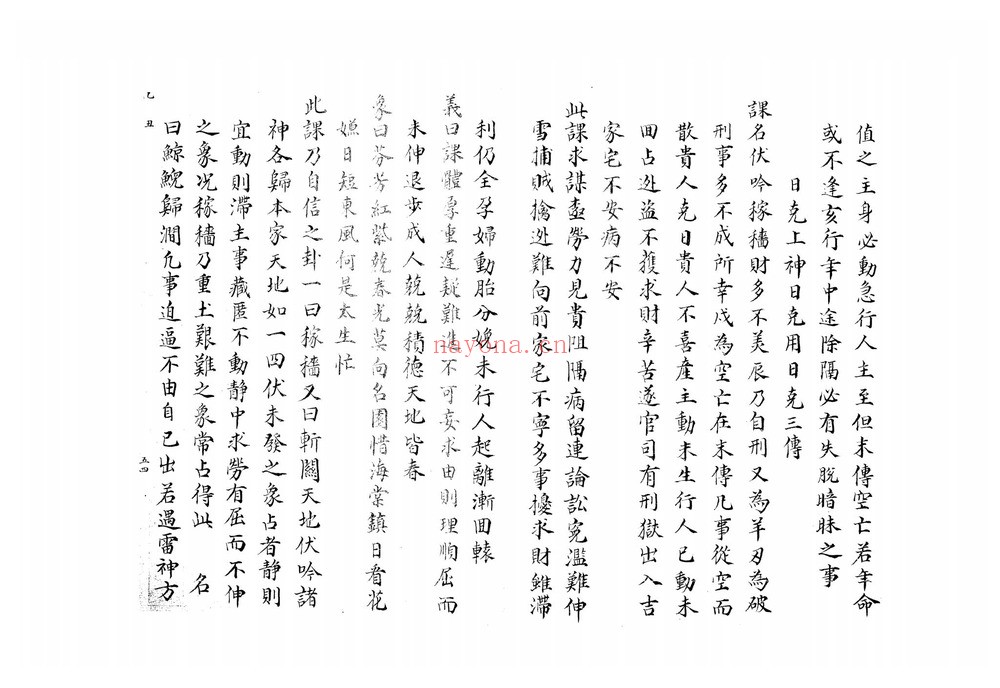 值之主身必動急行人主至但末傳空亡若年命
或不逢亥行年中途除隔必有失脫暗昧之事
日克上神日克用日克三傳
課名伏吟稼穡財多不美辰乃自刑又為羊刃為破
刑事多不成所幸戌為空亡在末傳凡事從空而
散貴人克日貴人不喜產主動未生行人已動未
回占逃盜不獲求財辛苦遂官司有刑獄出入吉
家宅不安病不安
此課求謀虛勞力見貴阻隔病留連論訟寃濫難伸
雪捕賊擒逃難向前家宅不寧多事擾求財雖滯
利仍全孕婦動胎分娩未行人起離漸回轅
義曰課體厚重遲疑難進不可妄求由則理順屈而
未伸退步成人兢兢積德天地皆春
象曰芬芳紅紫乾春光莫向名園惜海棠鎮日看花
嫌日短東風何是太生忙
此課乃自信之卦一曰稼穡又曰斬關天地伏吟諸
神各歸本家天地如一四伏未發之象占者靜則
宜動則滯主事藏匿不動靜中求勞有屈而不伸
之象况稼穡乃重土艱難之象常占得此 名
曰鯨鯢歸澗凡事迫逼不由自己出若遇雷神方
乙丑
五四
nayona.cn